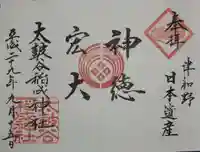 奉拝
津和野
日本遺産
神徳
宏大
太皷谷稲成神社
平成二十九年九月十五日